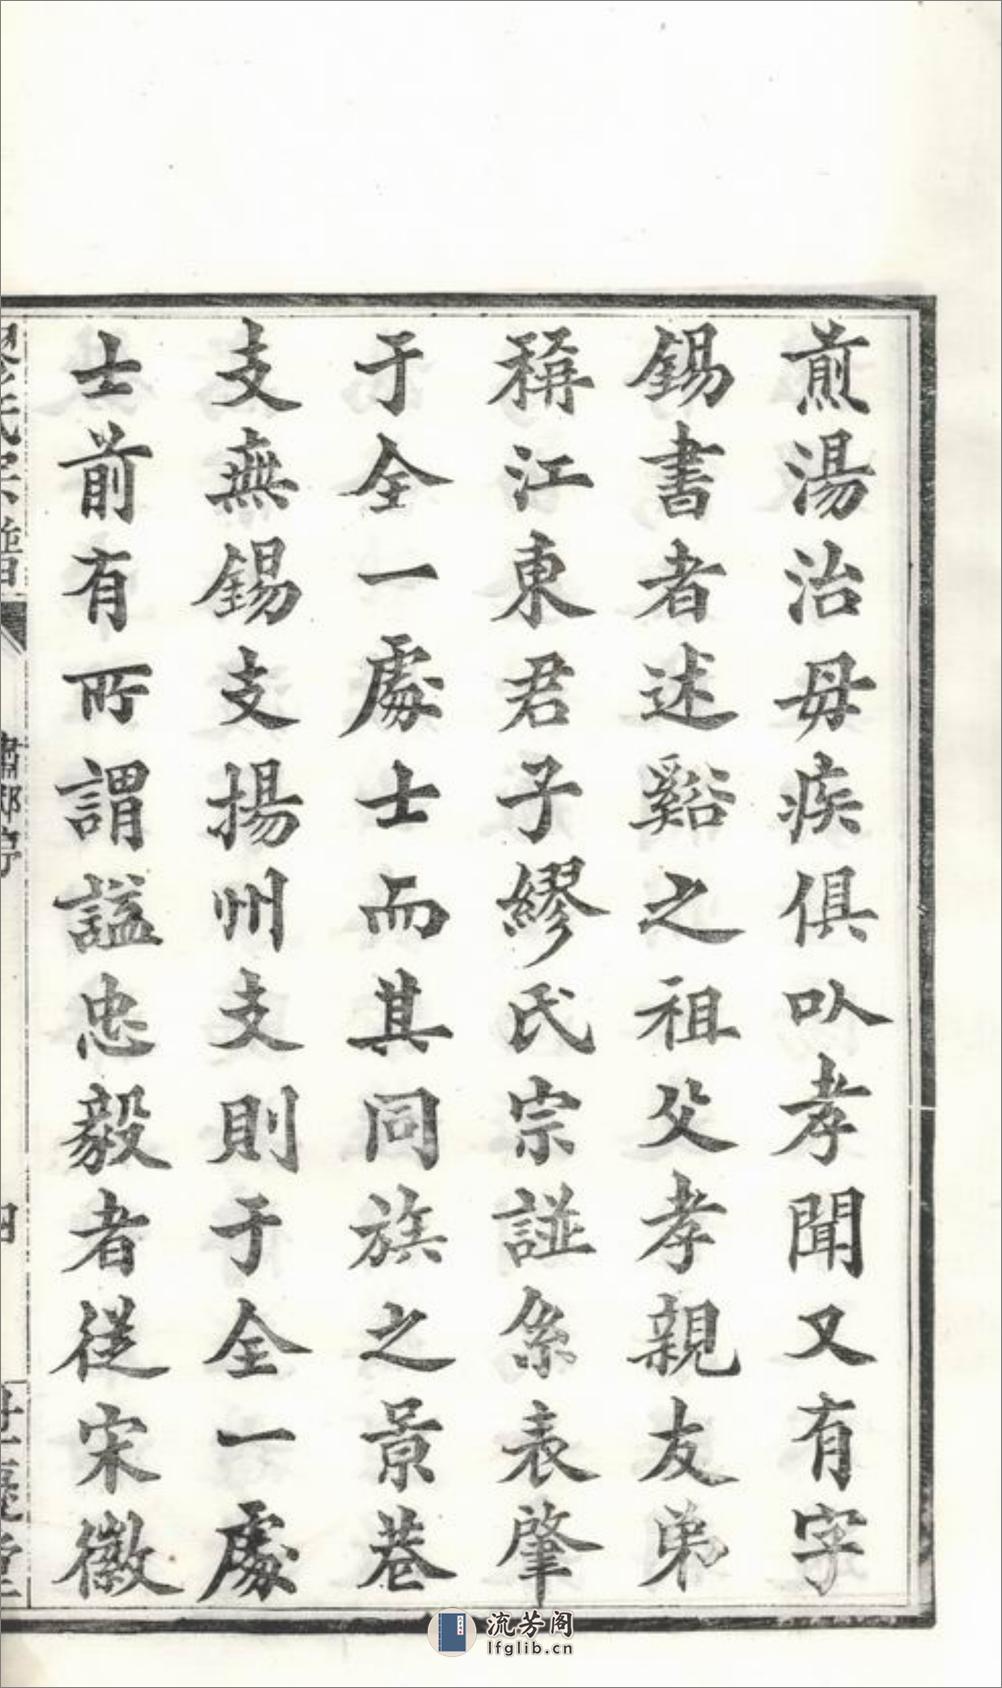 煎湯治母疾俱以孝聞又有字
錫書者述谿之祖父孝親友弟
稱江東君子繆氏宗譜系表肇
于全一處士而其同族之景巷
支無錫支揚州支則于全一處
士前有所謂謚忠毅者從宋徽
流芳阁
lfglib.cn